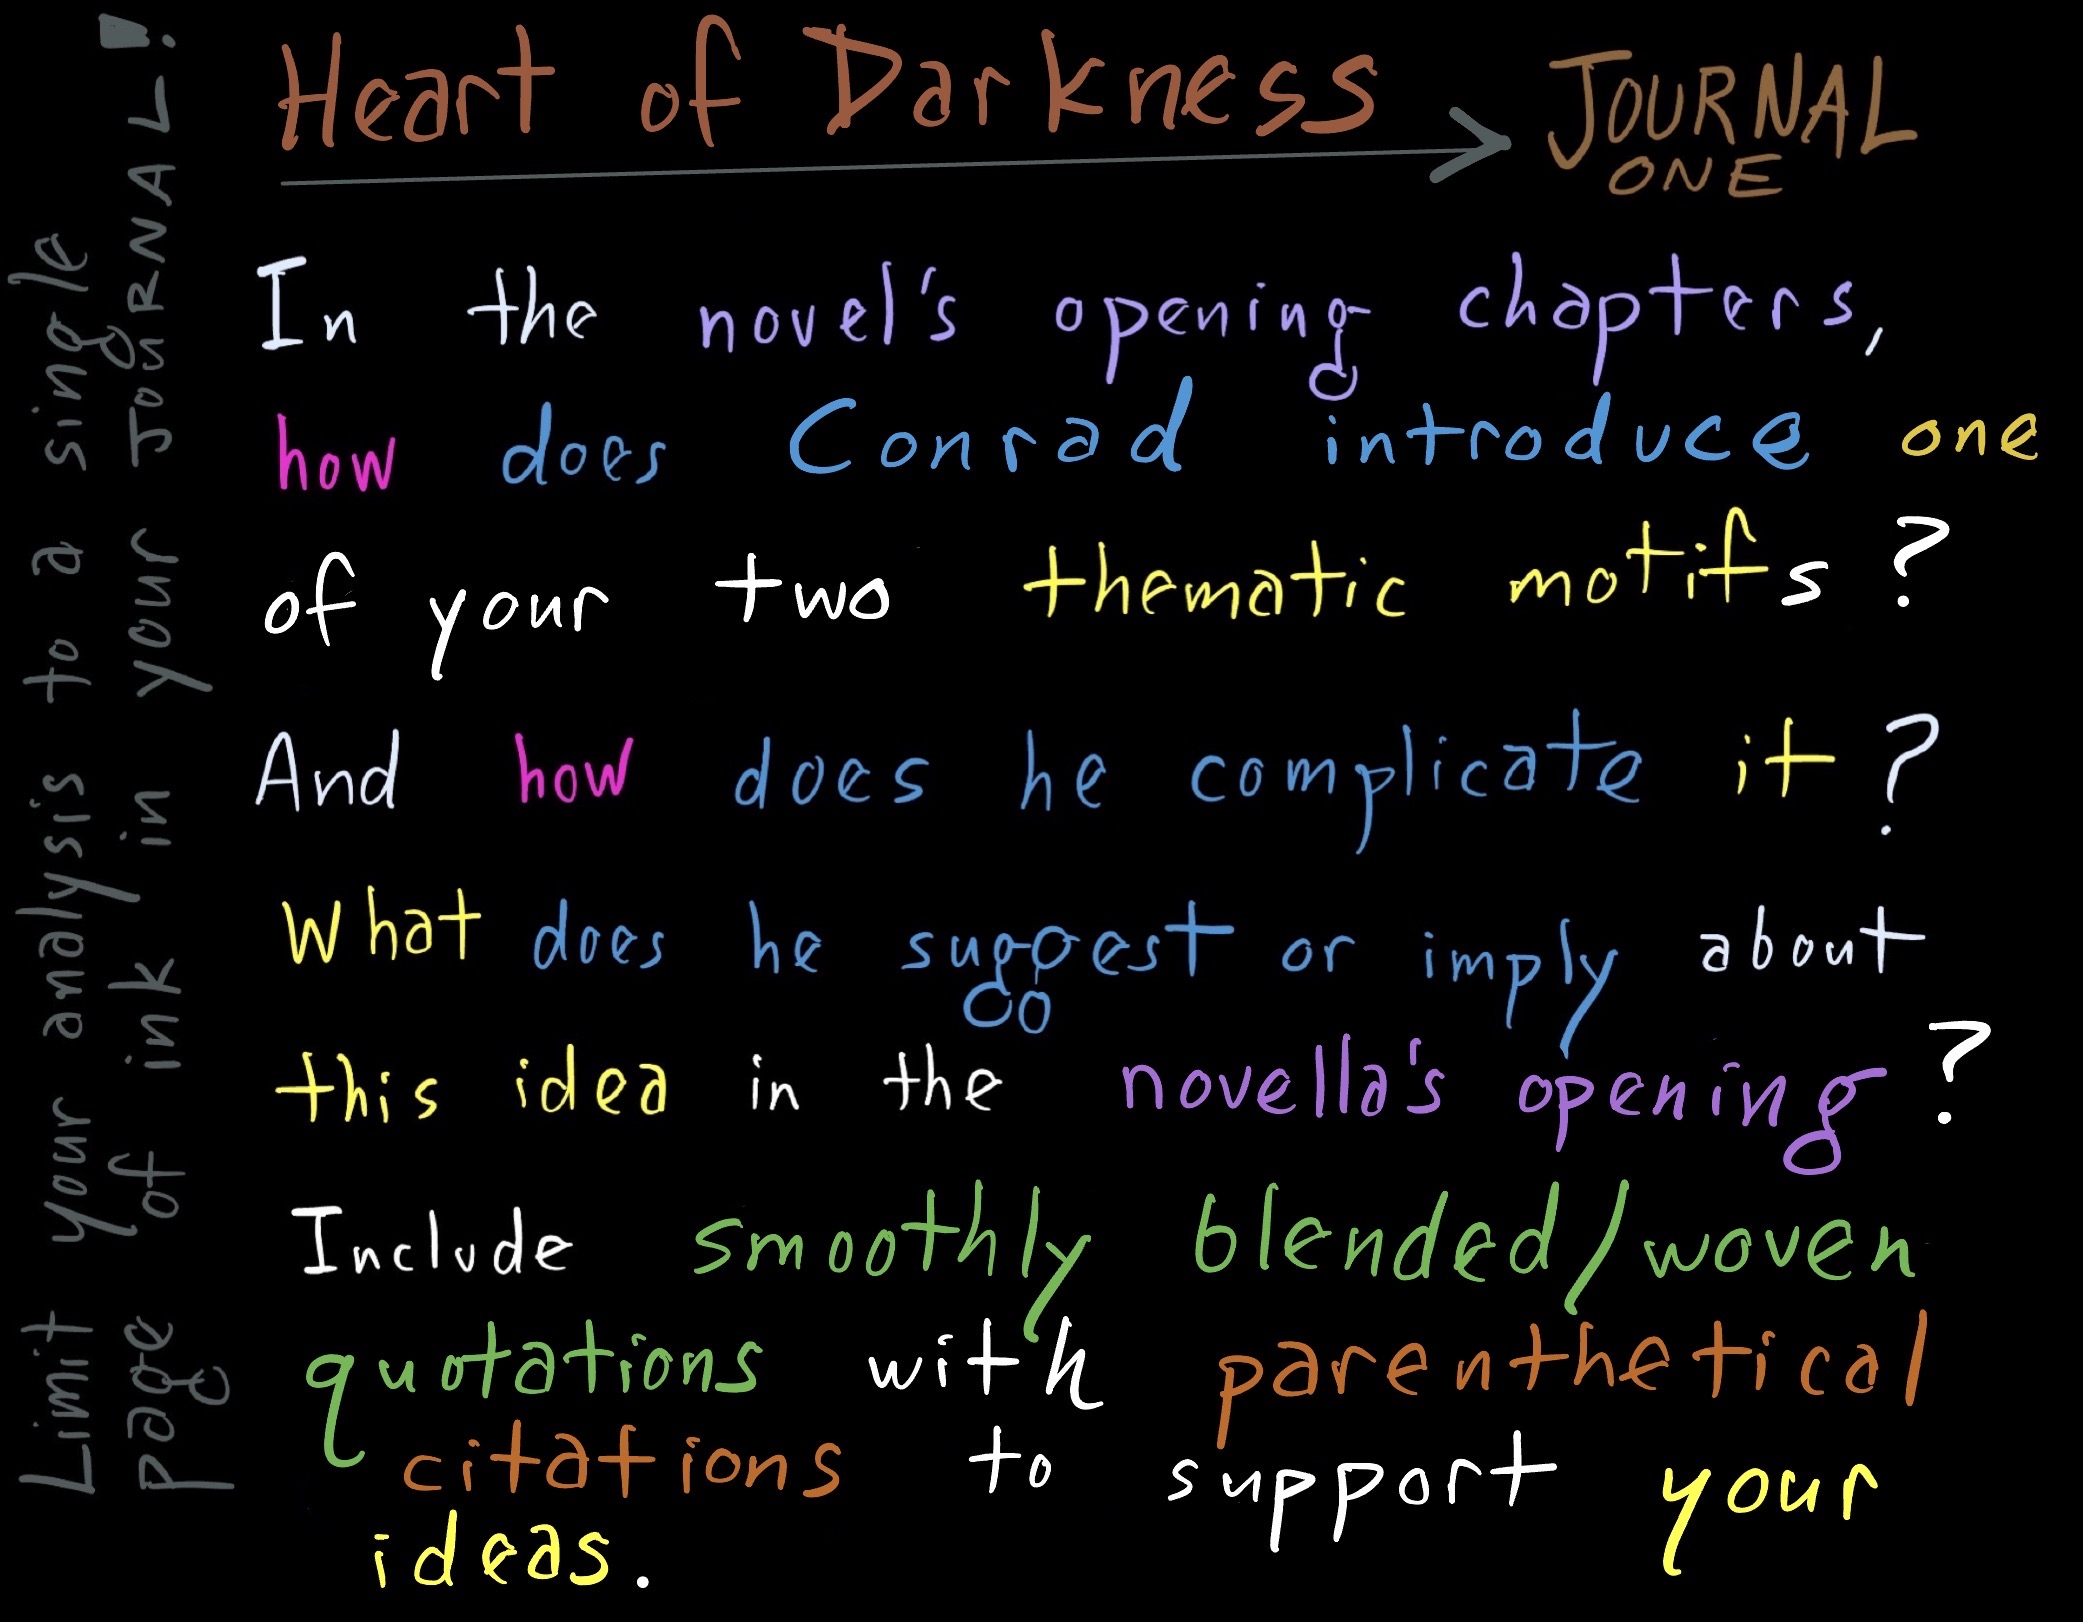 Heart of Darkness JOURNAL
ONE
In the novel's opening chapters,
how does Conrad introduce one
of your two thematic motifs?
And how does he complicate it?
What does he suggest or imply about
this idea in the novella's opening?
Include smoothly blended/woven
quotations with parenthetical
citations to support your
ideas.
Limit your analysis to a single
page of ink in your JOURNAL!